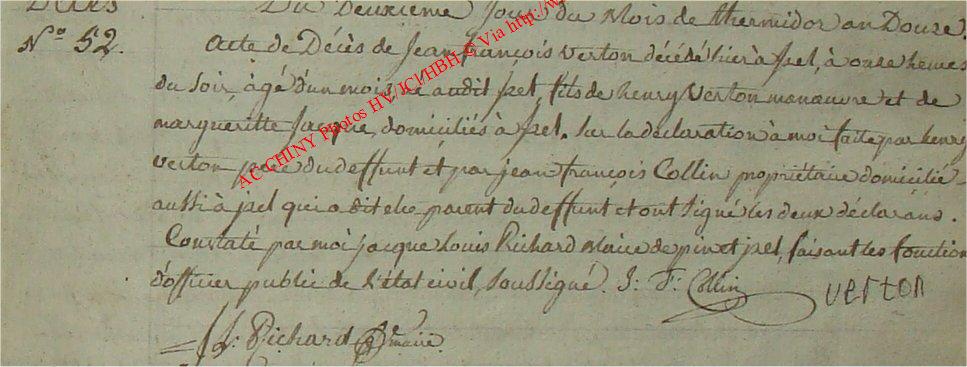 Décès
Du Deuxieme jour du Mois de thermidor an Douze.
N.o 52.
Acte de Décès de Jean françois verton décédé hier à Izel, à onze heures
du soir, âgé d'un mois, né audit Izel, fils de henry Verton manœuvre et de
margueritte Jacque, domiciliés à Izel. Sur la déclaration à moi faite par henry
verton pere du deffunt et par jean françois Collin propriétaire domicilié
aussi à Izel qui a dit etre parent du deffunt et ont signé les deux déclarans.
Constaté par moi jacque Louis Richard Maire de pin et Izel, faisant les fonction
d'officier public de l'état civil, soussigné. J: F: Collin verton
J: L: Richard maire
AC CHINY Photos HV/JCI/HBH © Via http://w